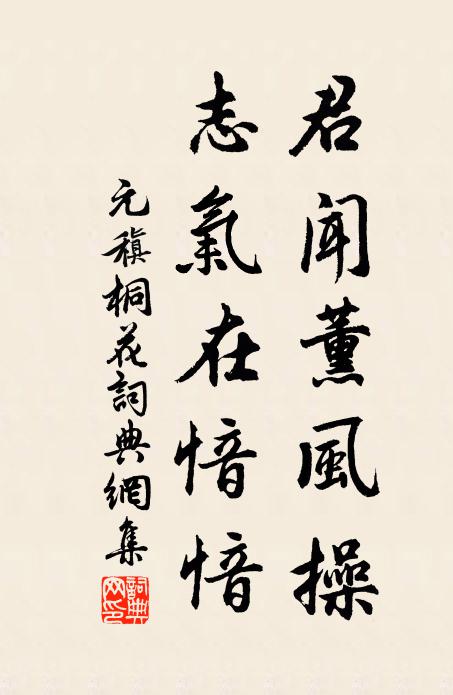 君聞薰風操
志氣在愔愔
元稹桐花詞典網集
詞典網印